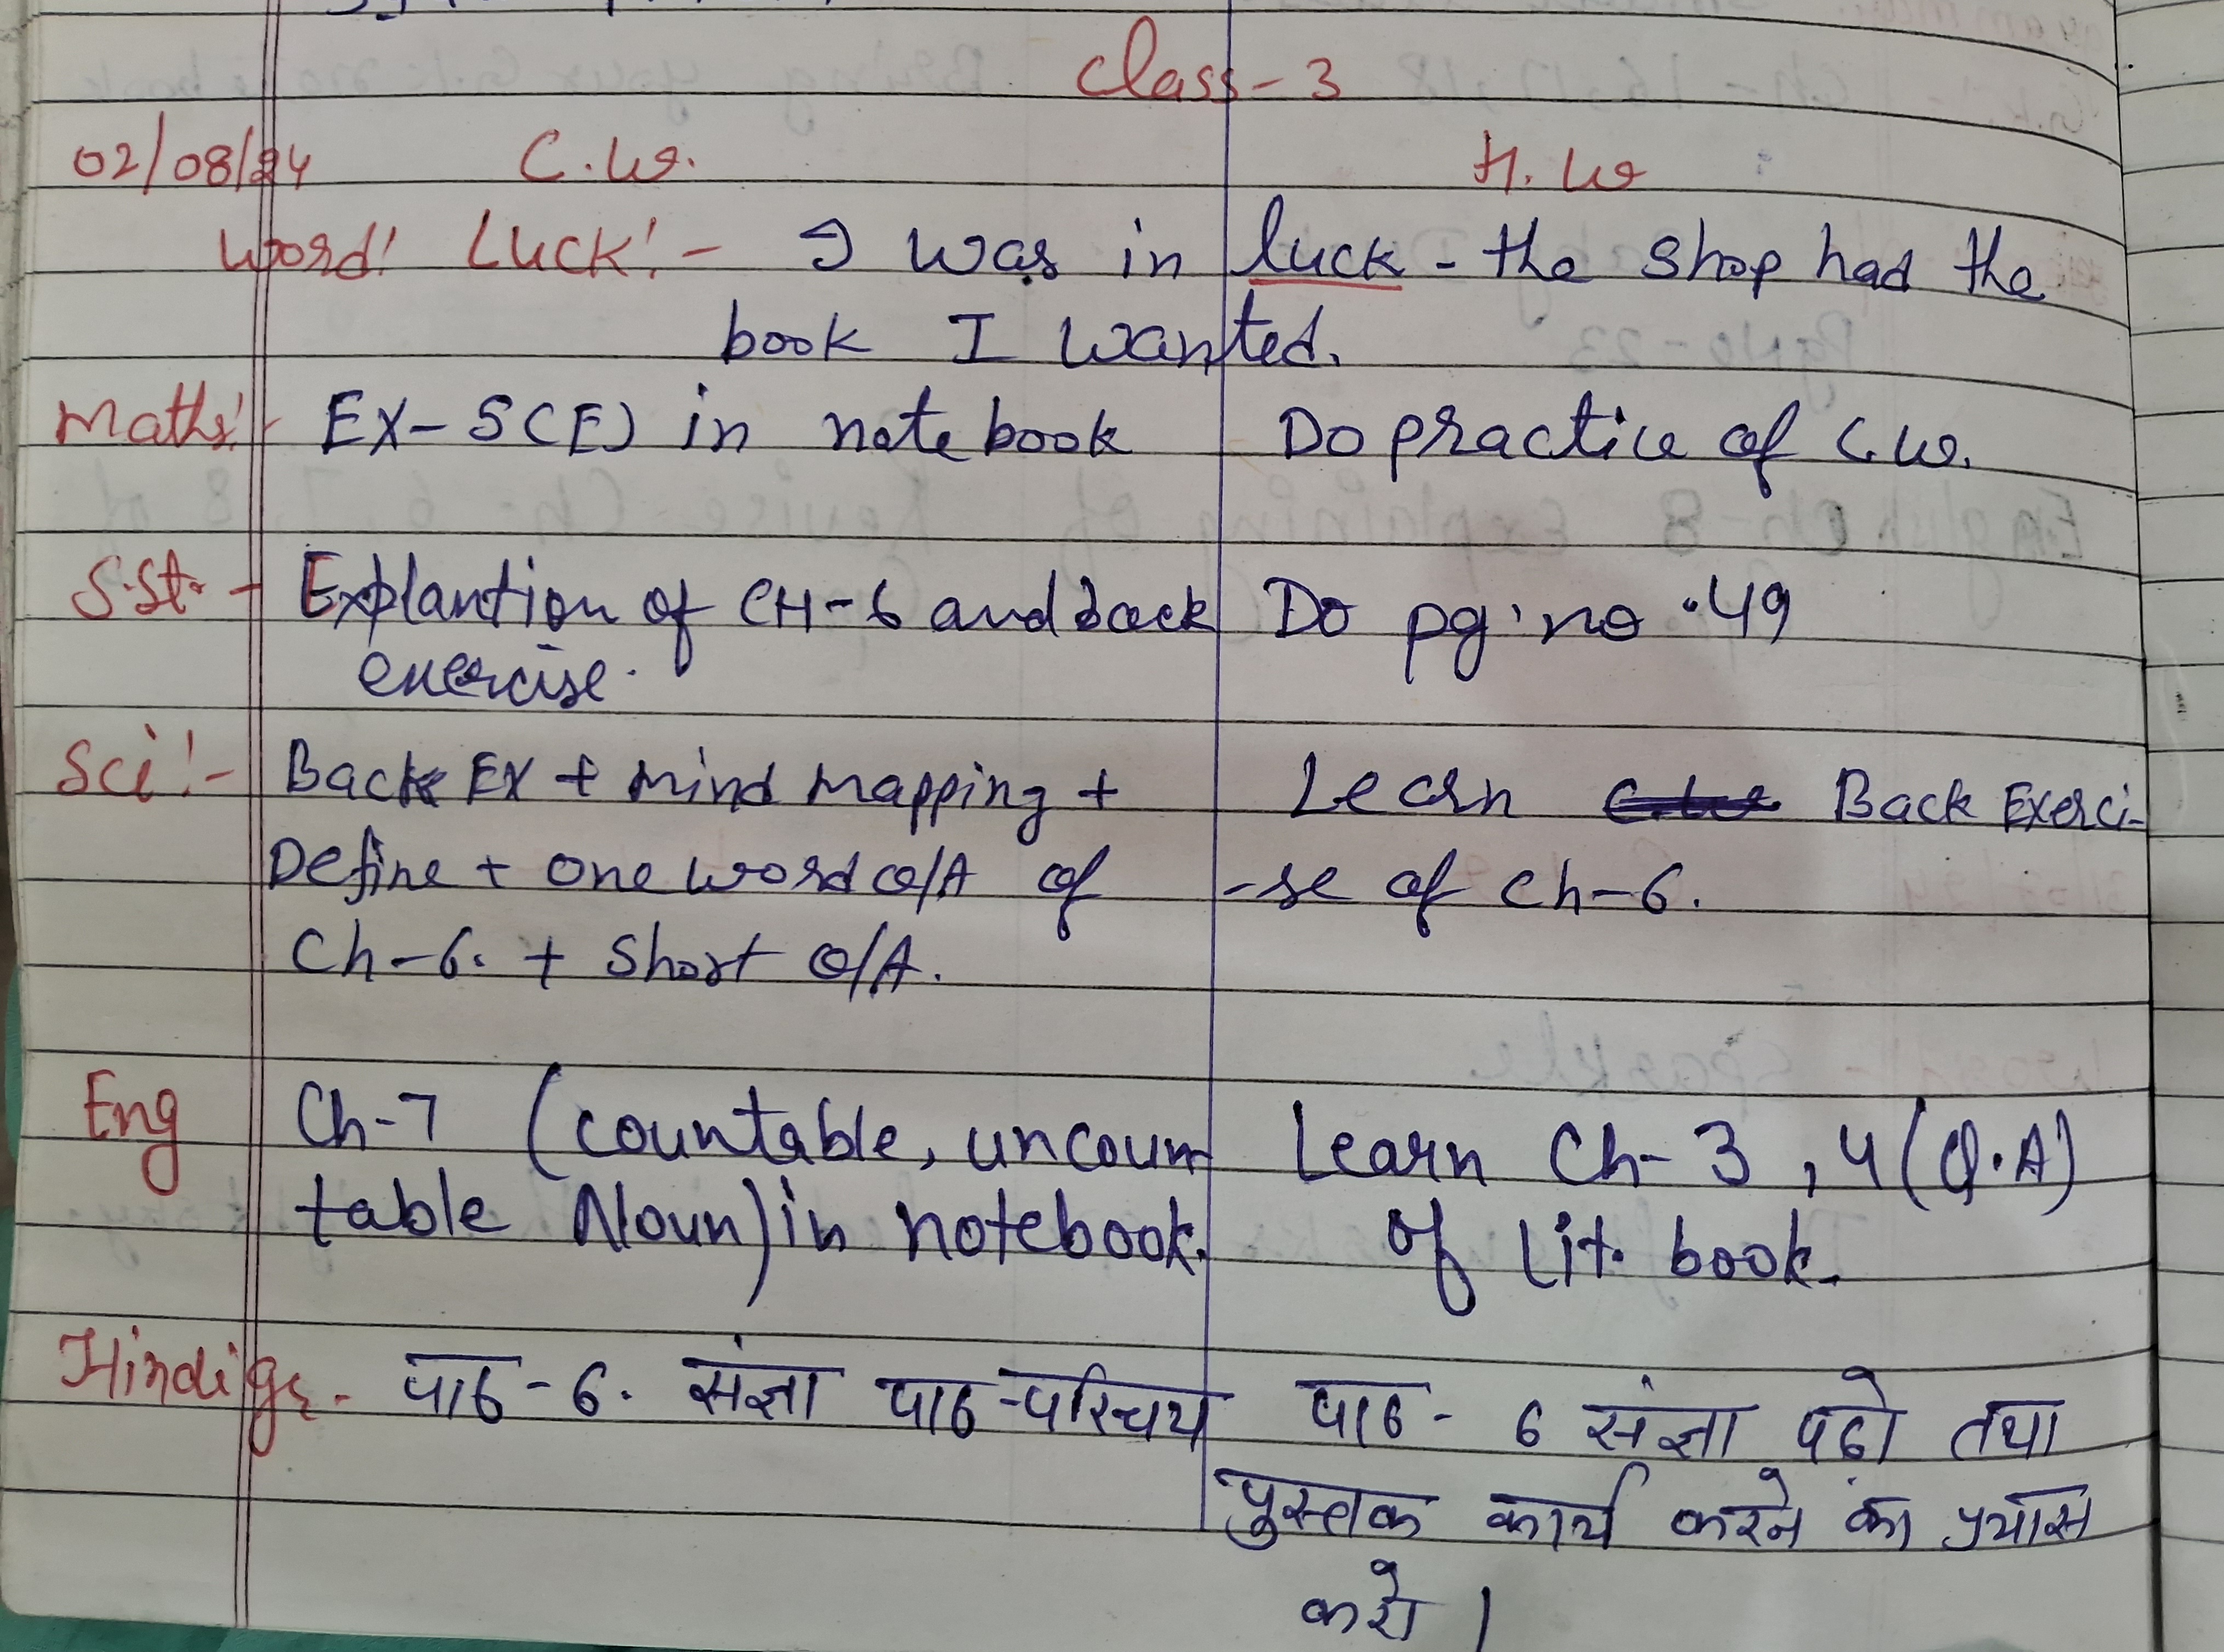 Class-3
02/08/24 C.W. H.W
Word! Luck!- I was in luck - the shop had the
book I wanted.
Maths!- EX-5(E) in notebook Do practice of C.W.
S.St.- Explantion of CH-6 and back Do pg. no. 49
exercise.
Sci!- Back EX + Mind Mapping + Learn Back Exerci-
Define + One word Q/A of -se of Ch-6.
Ch-6. + Short Q/A.
Eng Ch-7 (countable, uncoun Learn Ch-3, 4 (Q.A)
table Noun) in notebook. of Lit. book.
Hindi gr.- पाठ-6. संज्ञा पाठ-परिचय पाठ- 6 संज्ञा पढ़ो तथा
पुस्तक कार्य करने का प्रयास
करो ।